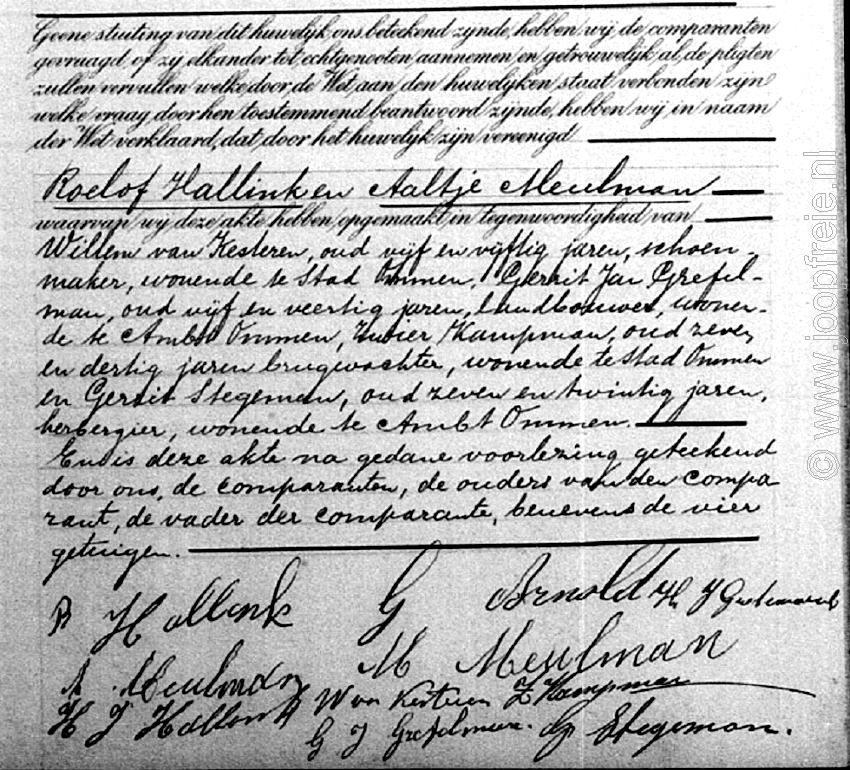 Geene stuiting van dit huwelijk ons beteekend zijnde, hebben wij de comparanten
gevraagd of zij elkander tot echtgenooten aannemen en getrouwelijk al de pligten
zullen vervullen welke door de Wet aan den huwelijken staat verbonden zijn
welke vraag door hen toestemmend beantwoord zijnde, hebben wij in naam
der Wet verklaard, dat door het huwelijk zijn vereenigd
Roelof Hallink en Aaltje Meulman
waarvan wij deze akte hebben opgemaakt in tegenwoordigheid van
Willem van Kesteren, oud vijf en vijftig jaren, schoen-
maker, wonende te Stad Ommen, Gerrit Jan Grefel-
man, oud vijf en veertig jaren, landbouwer, wonen-
de te Ambt Ommen, Kampman, oud zeven
en dertig jaren brugwachter, wonende te Stad Ommen
en Gerrit Stegeman, oud zeven en twintig jaren,
herbergier, wonende te Ambt Ommen.
En is deze akte na gedane voorlezing geteekend
door ons, de comparanten, de ouders van den compa-
rant, de vader der comparante, benevens de vier
getuigen.
R Hallink G Arnold H J
A Meulman M Meulman
H J Hallink W van Kesteren Z Kampman
G J Grefelman G Stegeman.
© www.joopfreie.nl